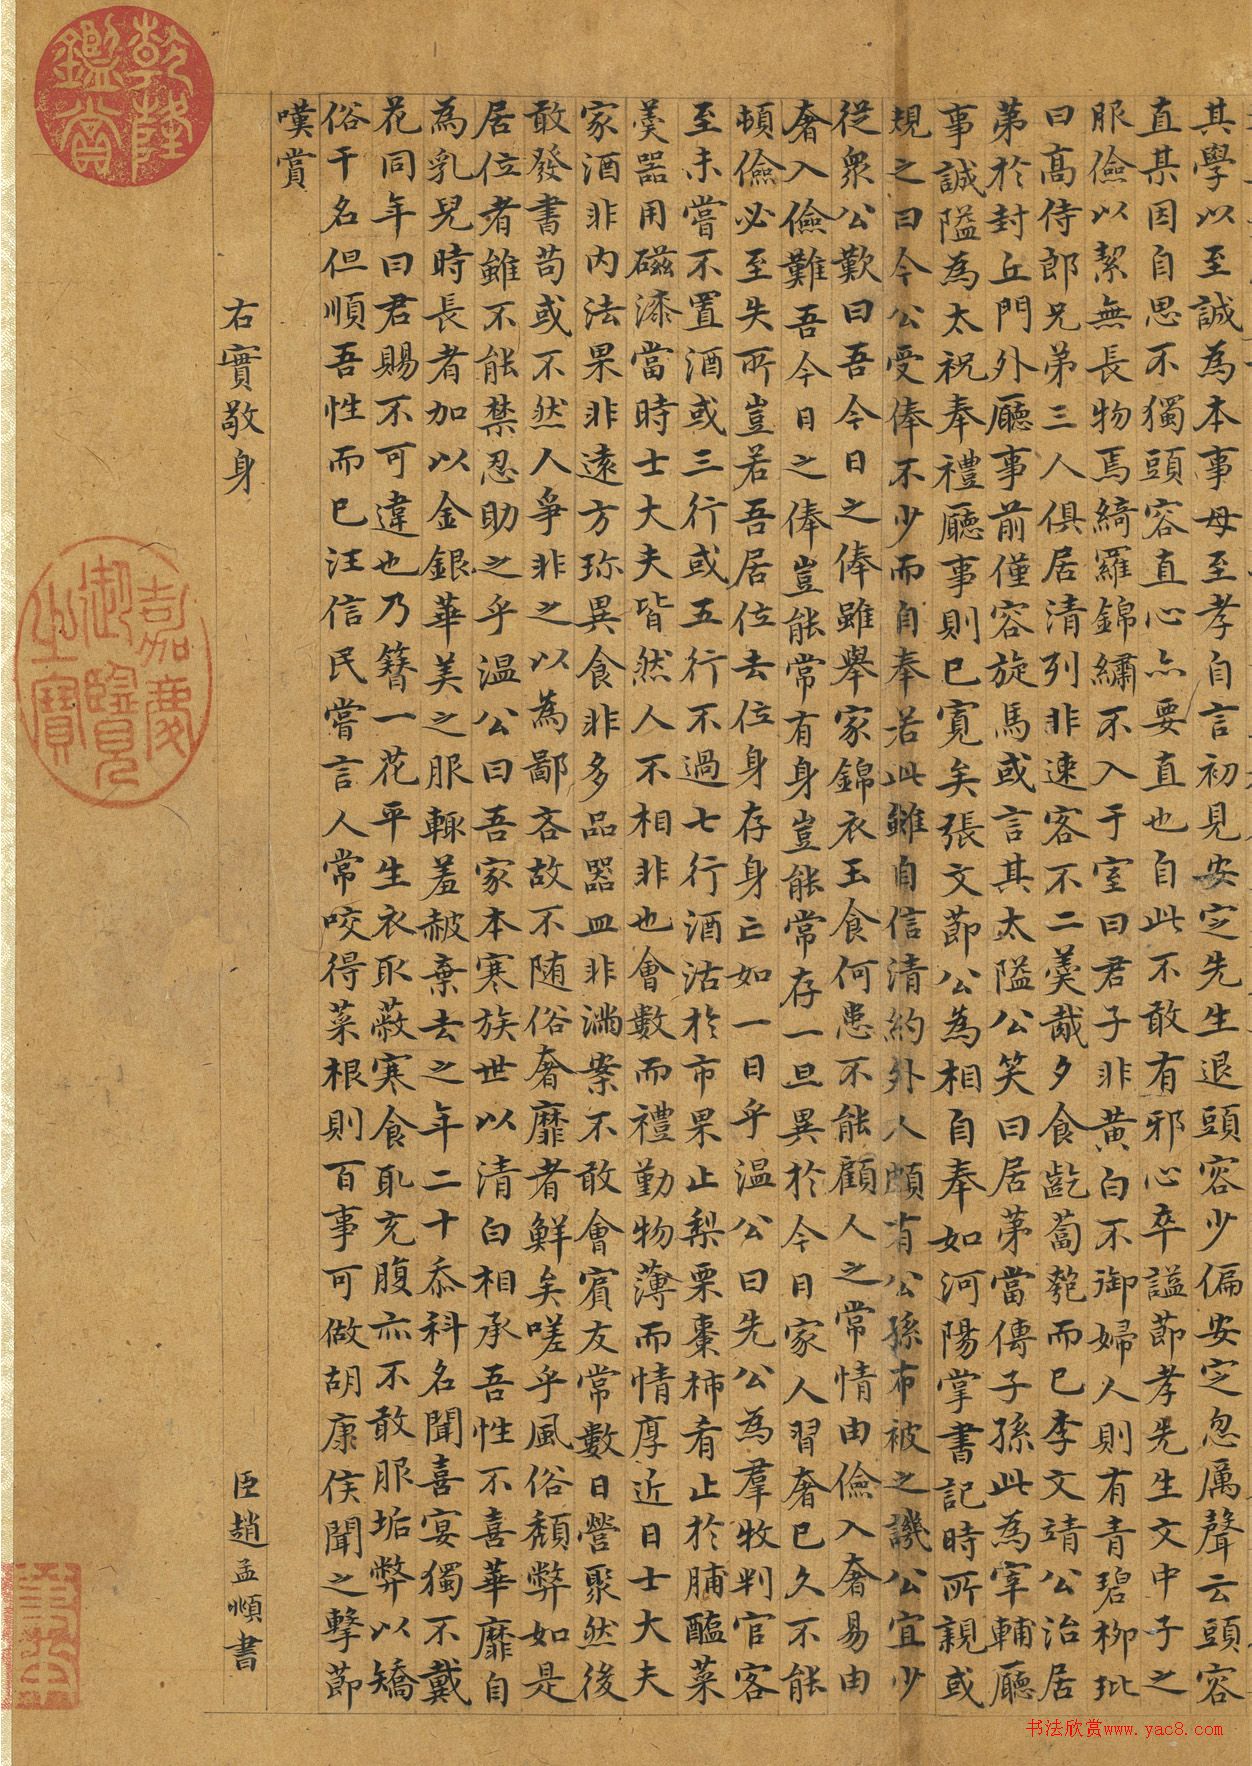 其學以至誠為本事母至孝自言初見安定先生退頭容少偏安定忽厲聲云頭容
直某因自思不獨頭容直心亦要直也自此不敢有邪心卒謚節孝先生文中子之
服儉以絜無長物焉綺羅錦繡不入于室曰君子非黃白不御婦人則有青碧柳玭
曰高侍郎兄弟三人俱居清列非速客不二羹胾夕食齕蔔匏而已李文靖公治居
第於封丘門外廳事前僅容旋馬或言其太隘公笑曰居第當傳子孫此為宰輔廳
事誠隘為太祝奉禮廳事則已寬矣張文節公為相自奉如河陽掌書記時所親或
規之曰今公受俸不少而自奉若此雖自信清約外人頗有公孫布被之譏公宜少
從衆公歎曰吾今日之俸雖舉家錦衣玉食何患不能顧人之常情由儉入奢易由
奢入儉難吾今日之俸豈能常有身豈能常存一旦異於今日家人習奢已久不能
頓儉必至失所豈若吾居位去位身存身亡如一日乎温公曰先公為羣牧判官客
至未嘗不置酒或三行或五行不過七行酒沽於市果止梨栗棗柿肴止於脯醢菜
羹器用磁漆當時士大夫皆然人不相非也會數而禮勤物薄而情厚近日士大夫
家酒非內法果非遠方珎異食非多品器皿非滿案不敢會賓友常數日營聚然後
敢發書苟或不然人爭非之以為鄙吝故不随俗奢靡者鮮矣嗟乎風俗頹弊如是
居位者雖不能禁忍助之乎温公曰吾家本寒族世以清白相承吾性不喜華靡自
為乳兒時長者加以金銀華美之服輒羞赧棄去之年二十忝科名聞喜宴獨不戴
花同年曰君賜不可違也乃簪一花平生衣取蔽寒食取充腹亦不敢服垢弊以矯
俗干名但順吾性而已汪信民嘗言人常咬得菜根則百事可做胡康侯聞之擊節
嘆賞
右實敬身
臣趙孟頫書
乾隆鑑賞
嘉慶御覽之寶
书法欣赏www.yac8.com